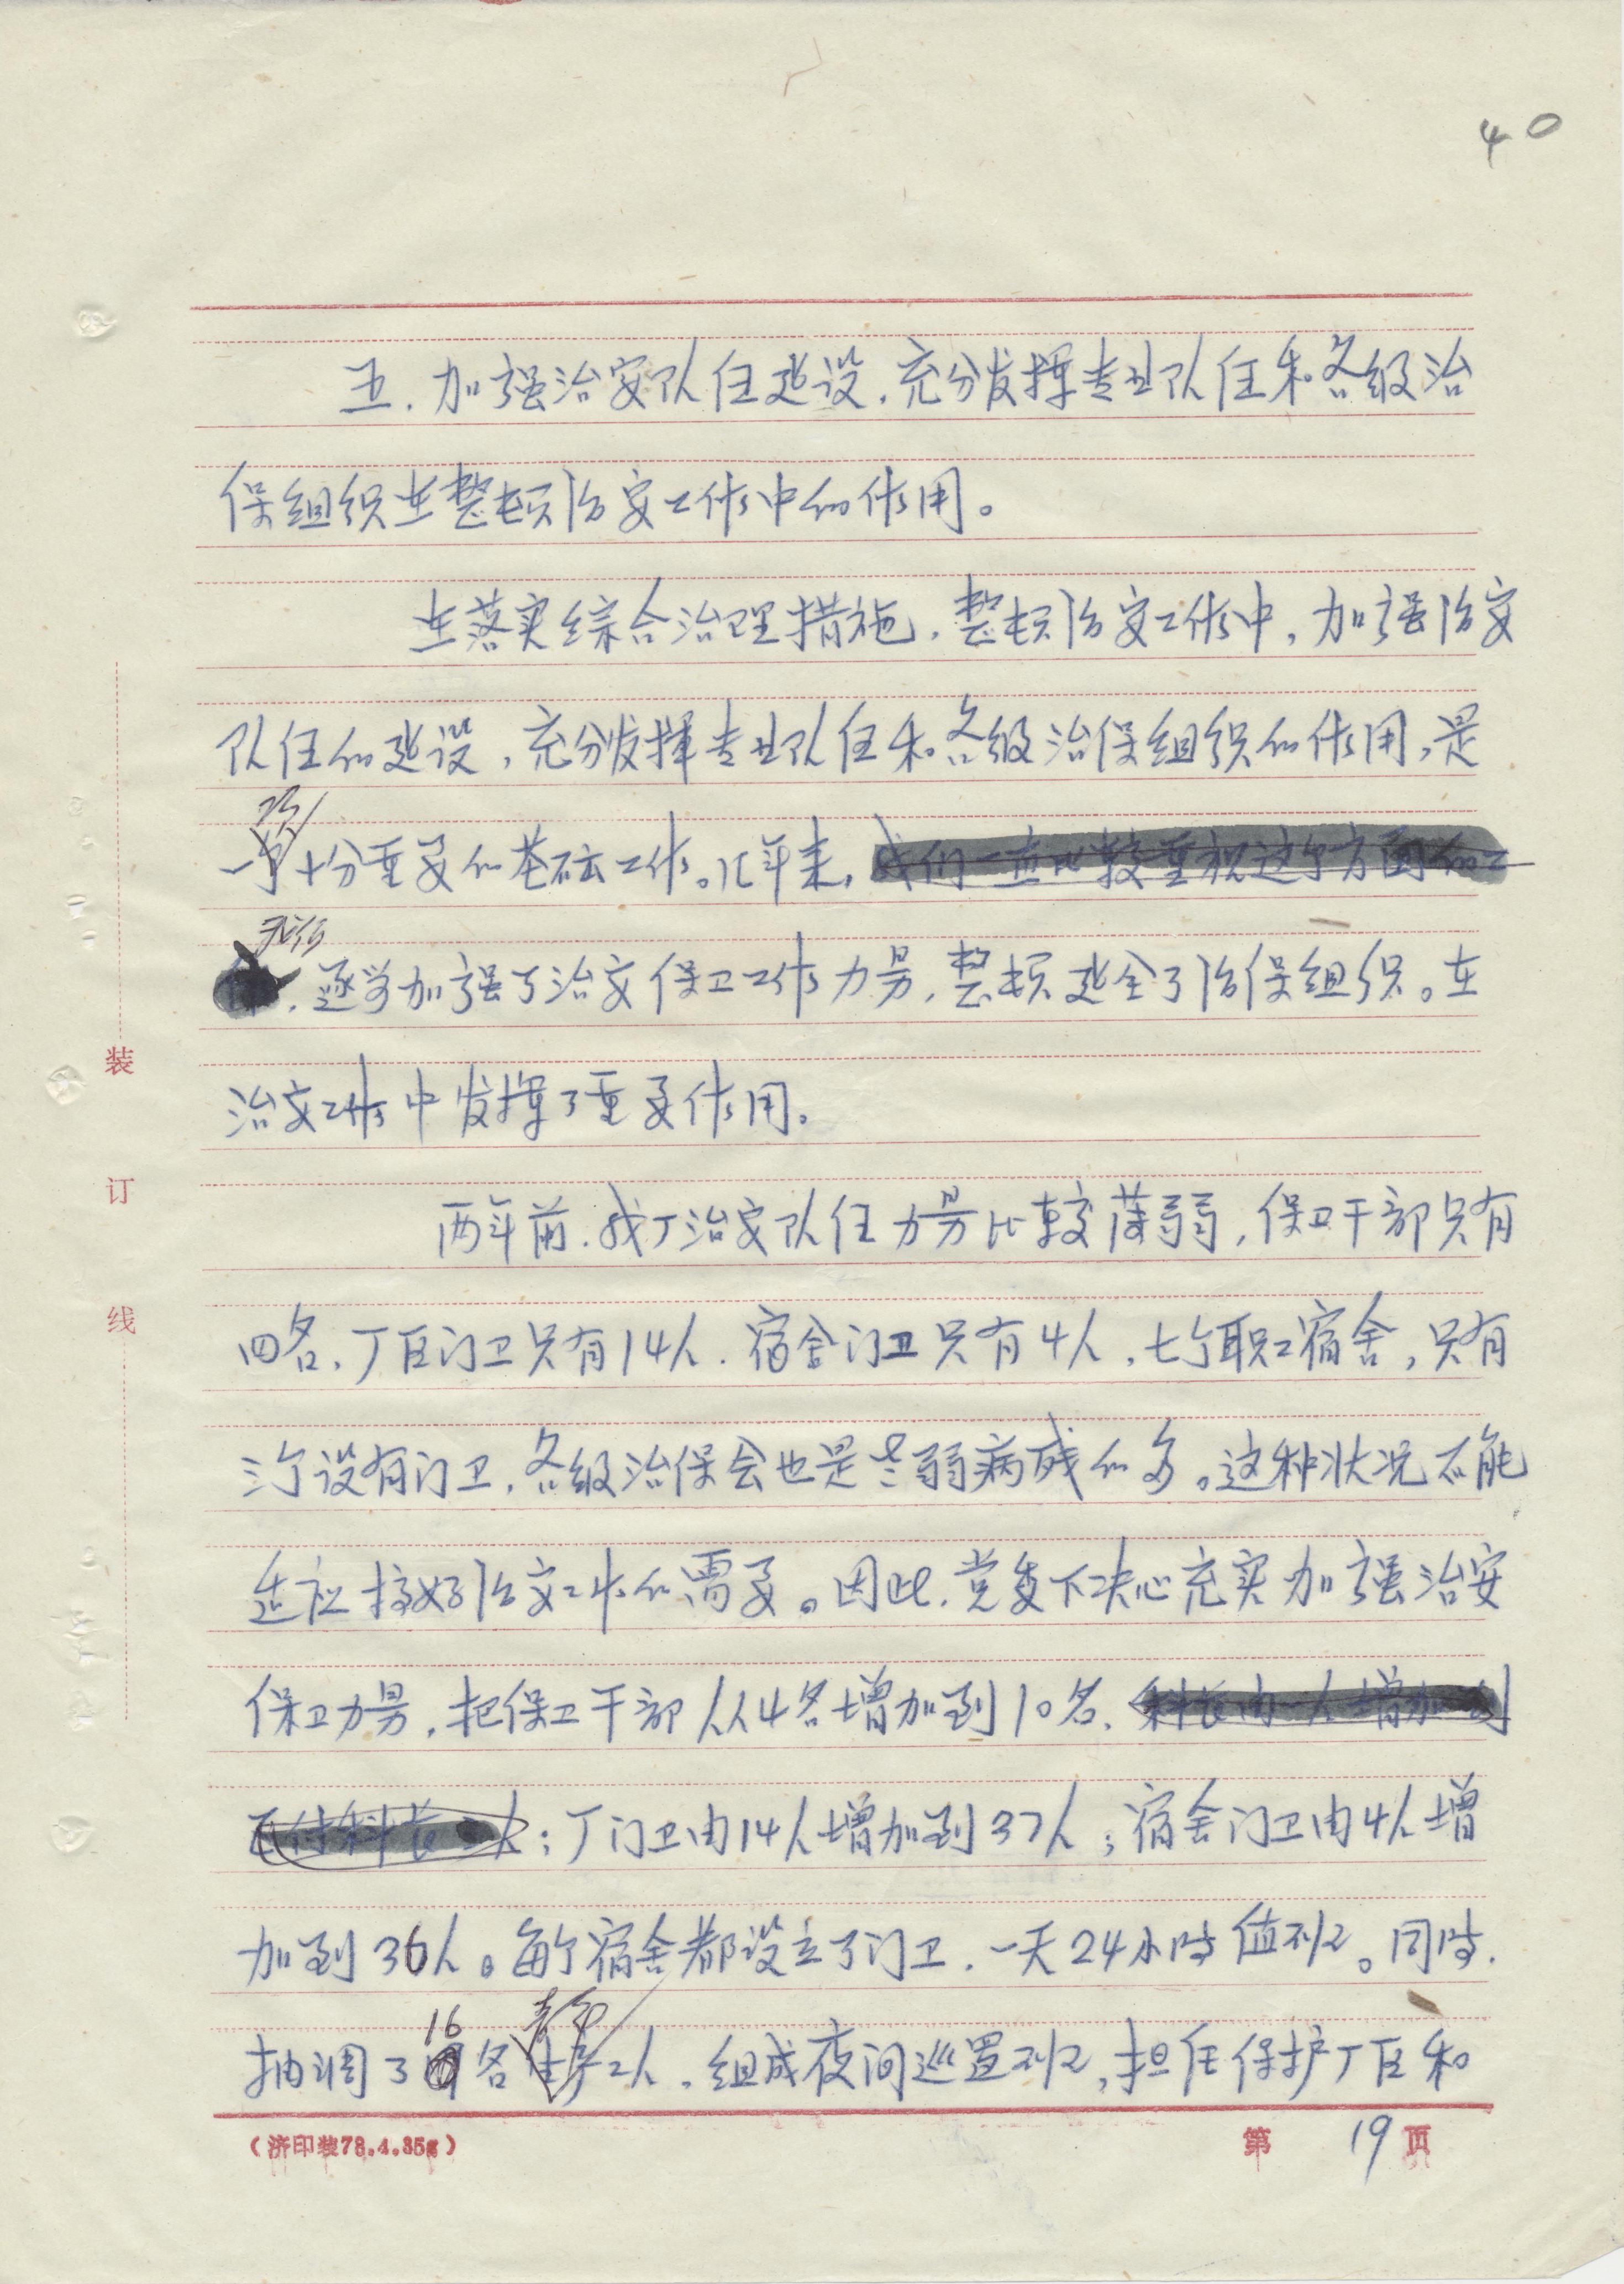 40
五．加强治安队伍建设．充分发挥专业队伍和各级治
保组织在整顿治安工作中的作用。
在落实综合治理措施，整顿治安工作中，加强治安
队伍的建设，充分发挥专业队伍和各级治保组织的作用，是
项
一个十分重要的基础工作。几年来，我们一直比较重视这个方面的工
我们
．逐步加强了治安保卫工作力量，整顿建全了治保组织。在
治安工作中发挥了重要作用。
两年前．我厂治安队伍力量比较薄弱，保卫干部只有
四名，厂区门卫只有14人．宿舍门卫只有4人，七个职工宿舍，只有
三个设有门卫，各级治保会也是老弱病残的多。这种状况不能
适应搞好治安工作的需要。因此．党委下决心充实加强治安
保卫力量，把保卫干部从4名增加到10名．科长由一人增加到
正付科长 人；厂门卫由14人增加到37人；宿舍门卫由4人增
加到36人。每个宿舍都设立了门卫．一天24小时值班。同时．
16
抽调了 名生产工人．组成夜间巡逻班，担任保护厂区和
装
订
线
（济印装78.4.35g）
第 19 页